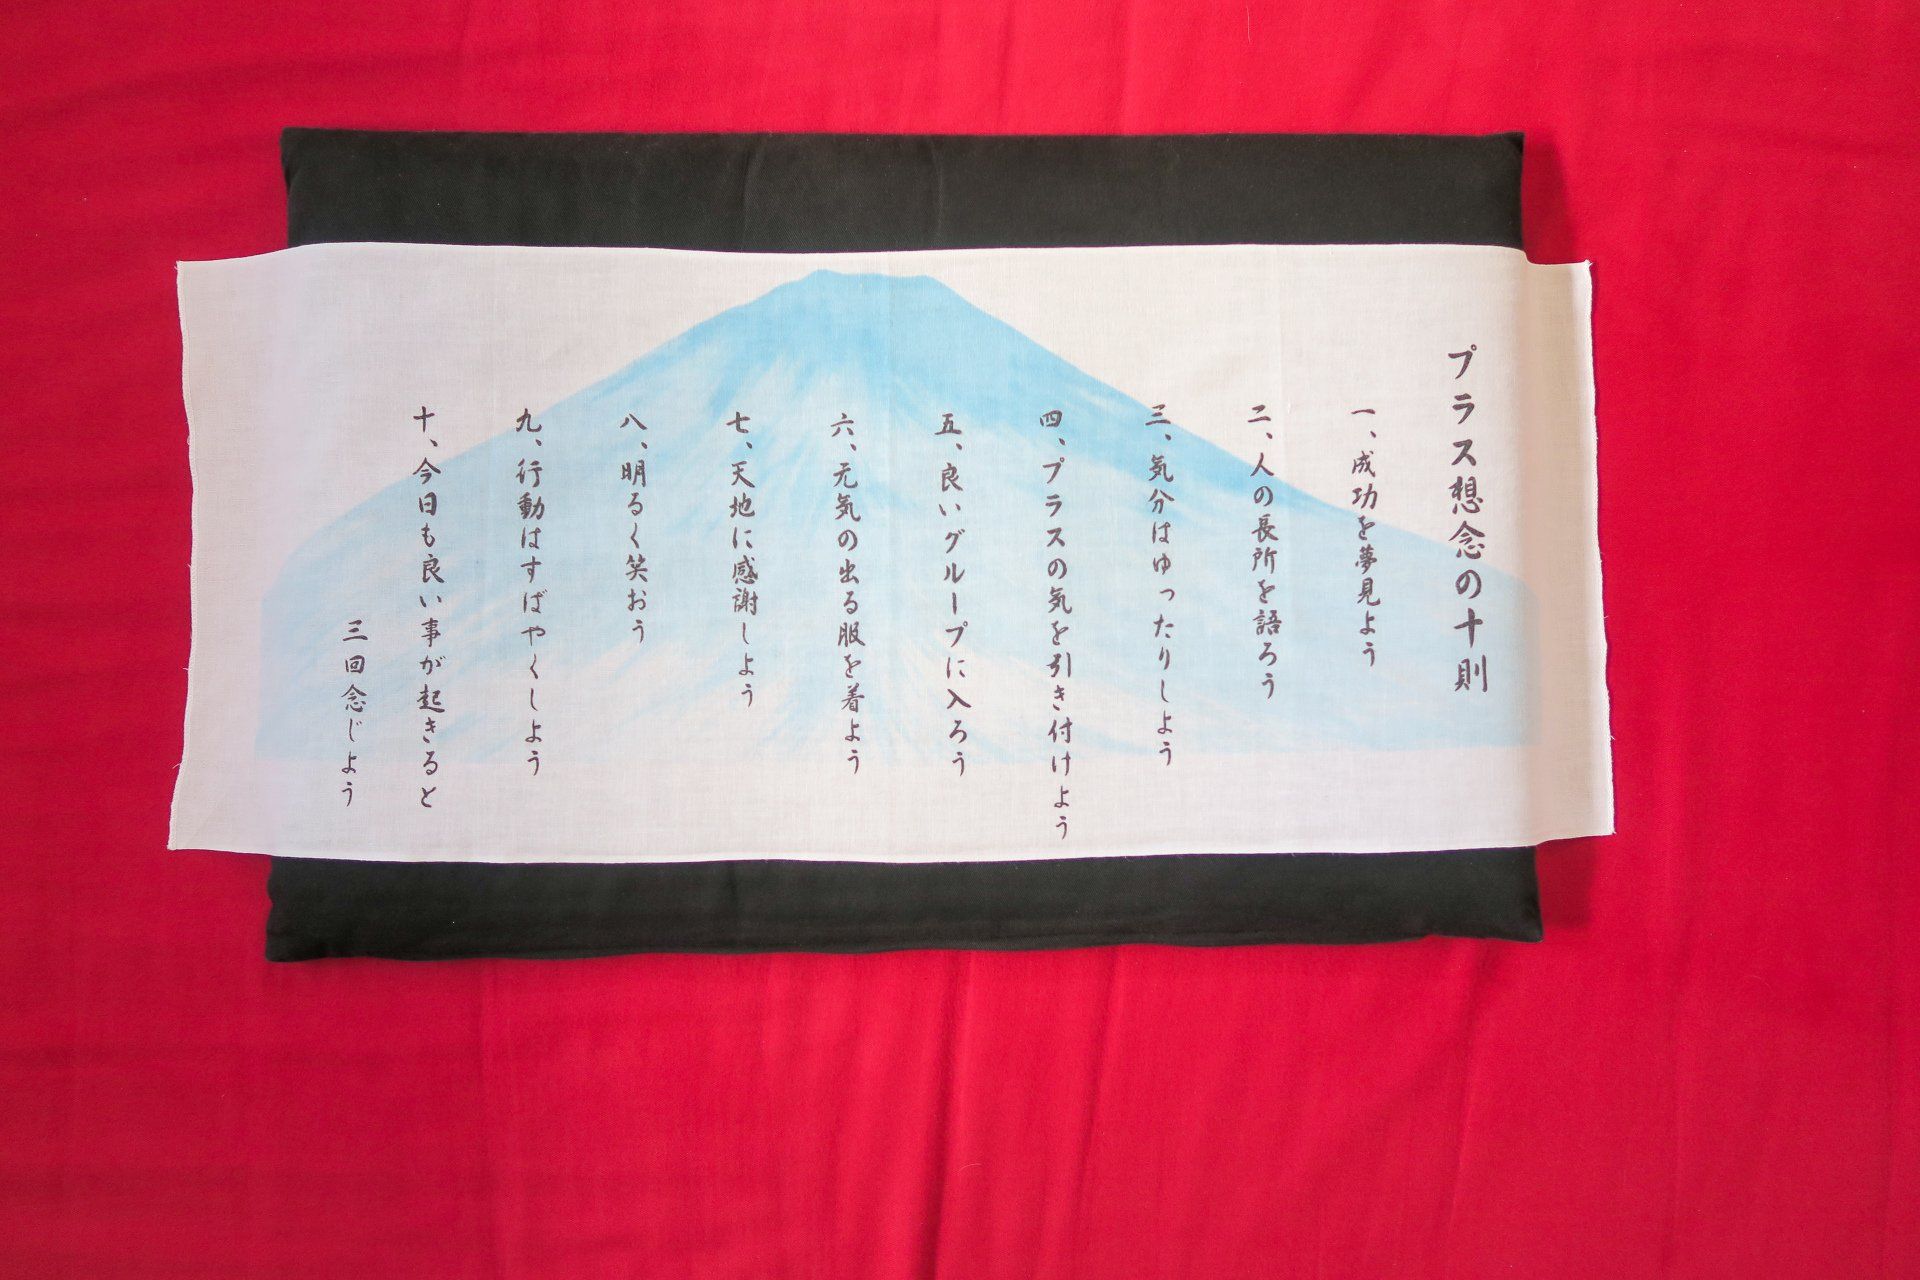 プラス想念の十則
一、成功を夢見よう
二、人の長所を語ろう
三、気分はゆったりしよう
四、プラスの気を引き付けよう
五、良いグループに入ろう
六、元気の出る服を着よう
七、天地に感謝しよう
八、明るく笑おう
九、行動はすばやくしよう
十、今日も良い事が起きると
三回念じよう